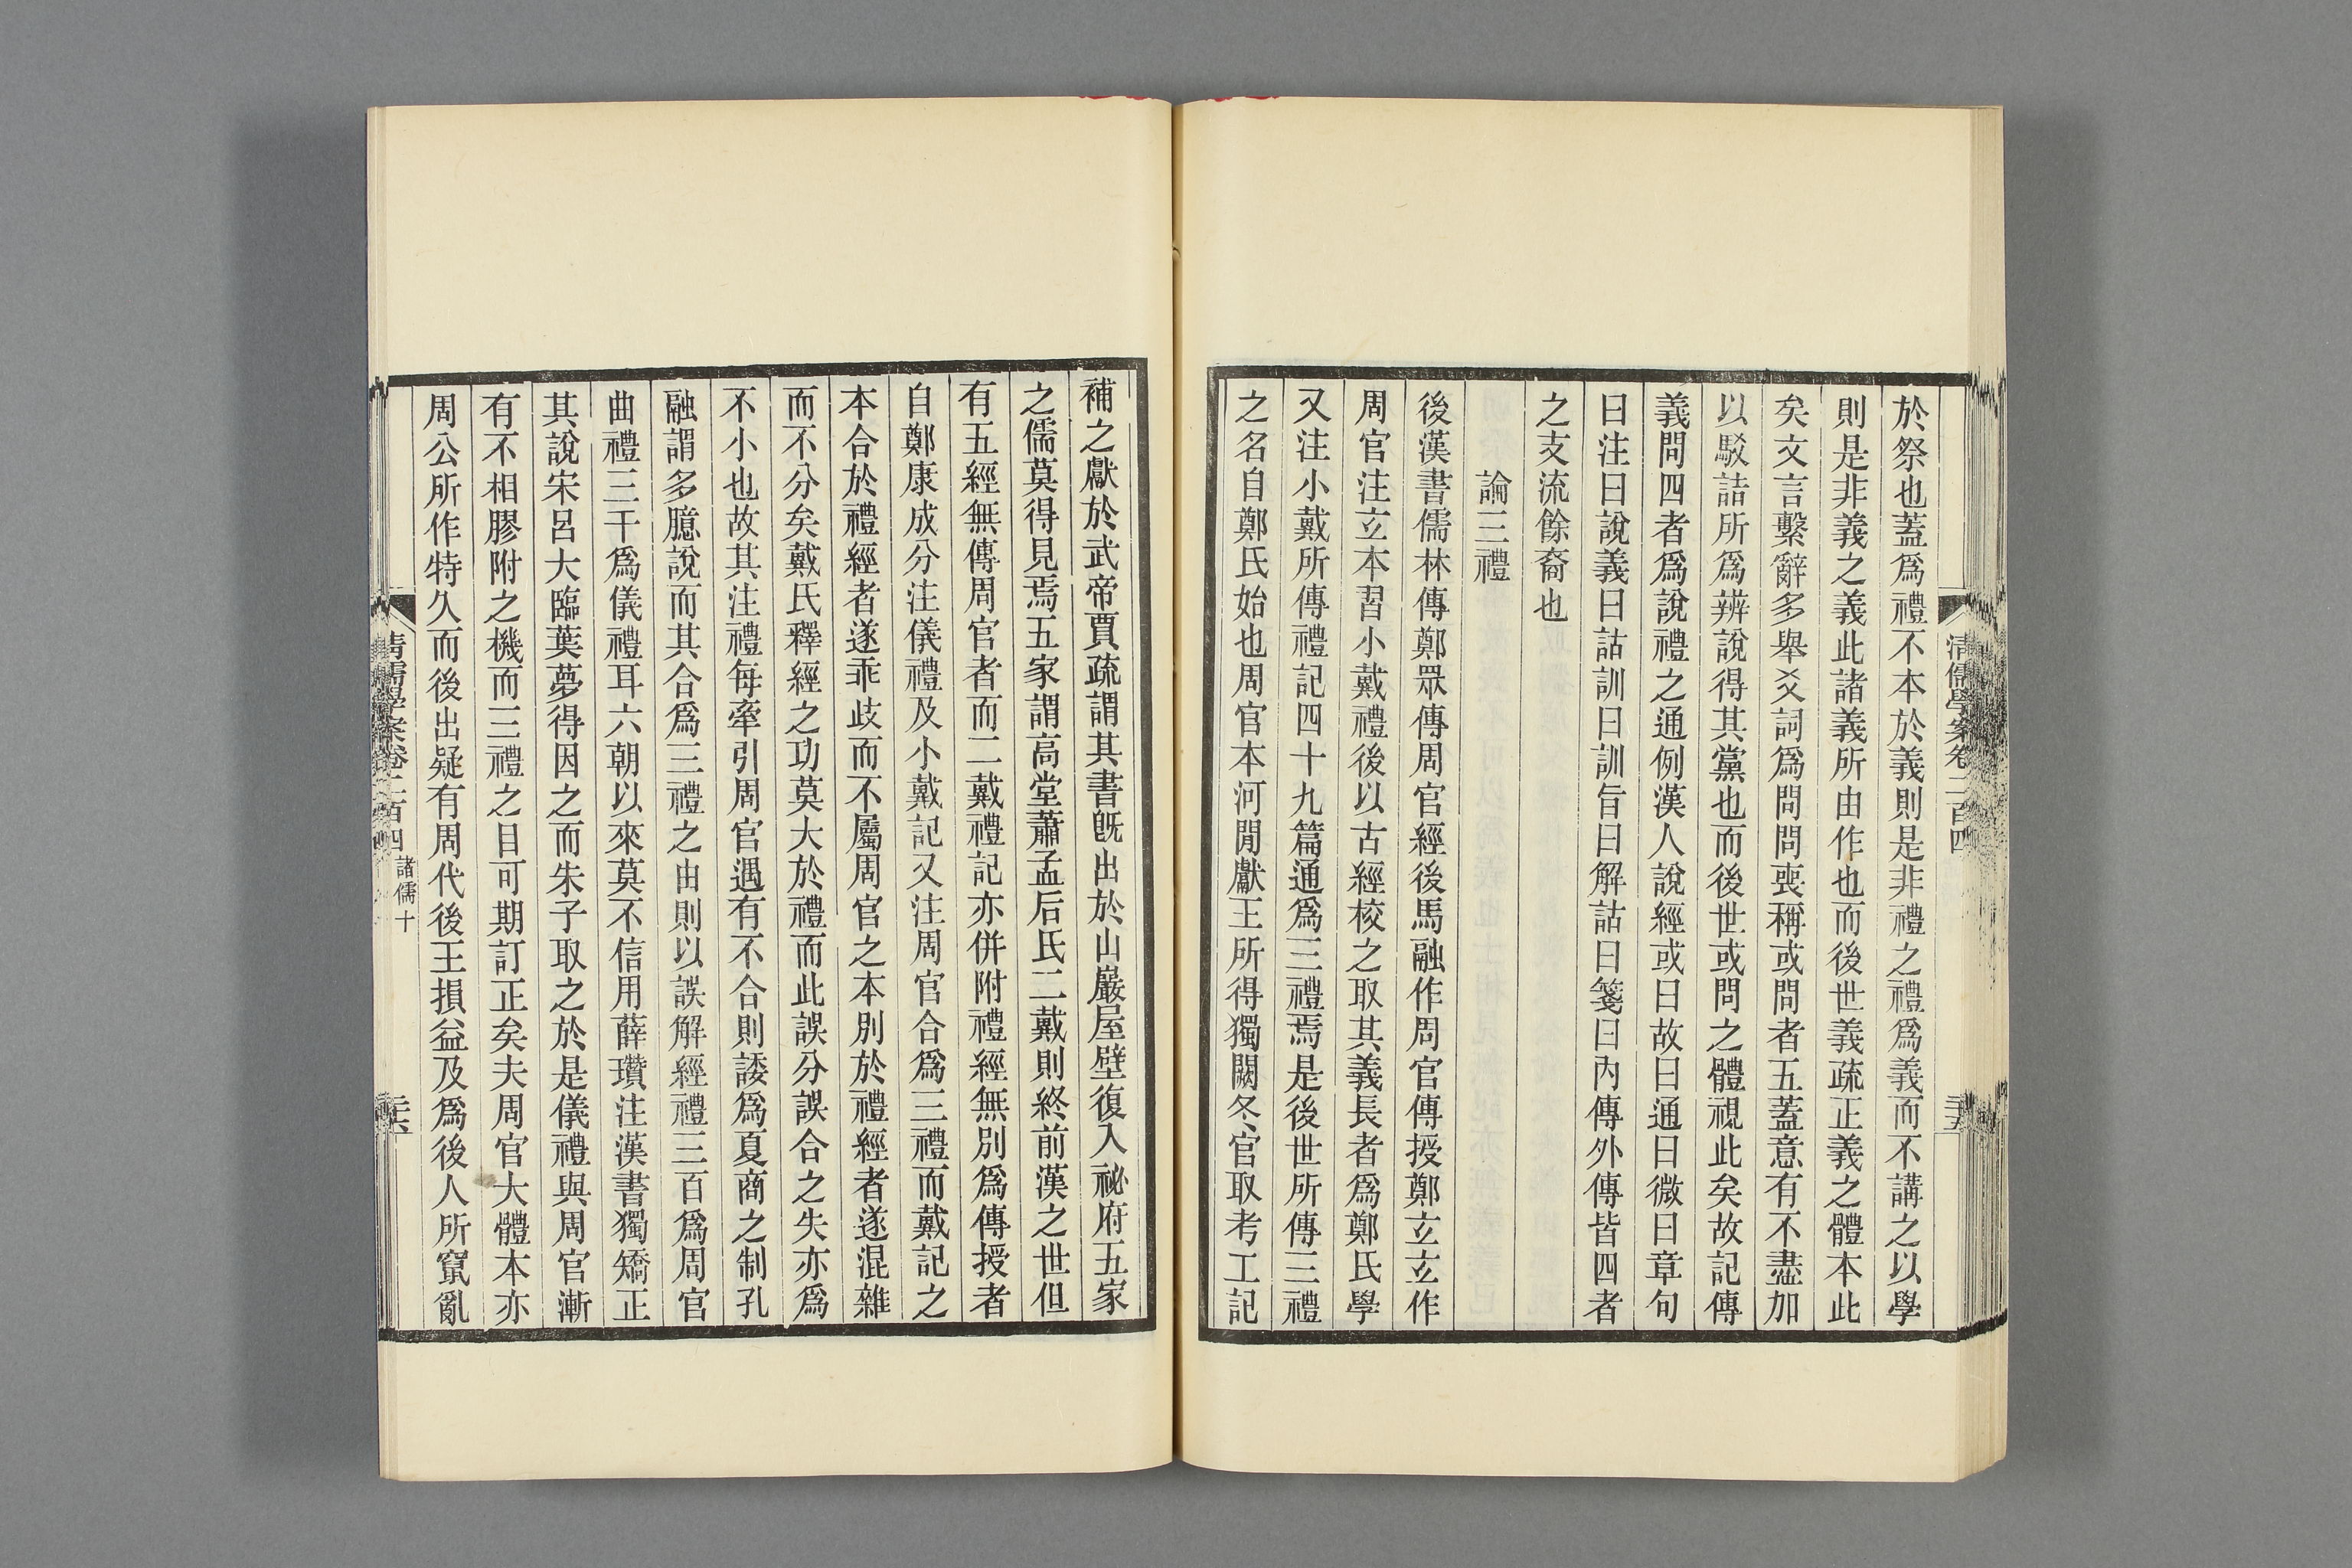 清儒學案卷二百四
於祭也蓋爲禮不本於義則是非禮之禮爲義而不講之以學
則是非義之義此諸義所由作也而後世義疏正義之體本此
矣文言繫辭多舉爻詞爲問問喪稱或問者五蓋意有不盡加
以駁詰所爲辨說得其黨也而後世或問之體視此矣故記傳
義問四者爲說禮之通例漢人說經或曰故曰通曰微曰章句
曰注曰說義曰詁訓曰訓旨曰解詁曰箋曰內傳外傳皆四者
之支流餘裔也
論三禮
後漢書儒林傳鄭眾傳周官經後馬融作周官傳授鄭玄玄作
周官注玄本習小戴禮後以古經校之取其義長者爲鄭氏學
又注小戴所傳禮記四十九篇通爲三禮焉是後世所傳三禮
之名自鄭氏始也周官本河閒獻王所得獨闕冬官取考工記
補之獻於武帝賈疏謂其書旣出於山巖屋壁復入祕府五家
之儒莫得見焉五家謂高堂蕭孟后氏二戴則終前漢之世但
有五經無傳周官者而二戴禮記亦併附禮經無別爲傳授者
自鄭康成分注儀禮及小戴記又注周官合爲三禮而戴記之
本合於禮經者遂乖歧而不屬周官之本別於禮經者遂混雜
而不分矣戴氏釋經之功莫大於禮而此誤分誤合之失亦爲
不小也故其注禮每牽引周官遇有不合則諉爲夏商之制孔
融謂多臆說而其合爲三禮之由則以誤解經禮三百爲周官
曲禮三千爲儀禮耳六朝以來莫不信用薛瓚注漢書獨矯正
其說宋呂大臨葉夢得因之而朱子取之於是儀禮與周官漸
有不相膠附之機而三禮之目可期訂正矣夫周官大體本亦
周公所作特久而後出疑有周代後王損益及爲後人所竄亂
清儒學案卷二百四 諸儒十